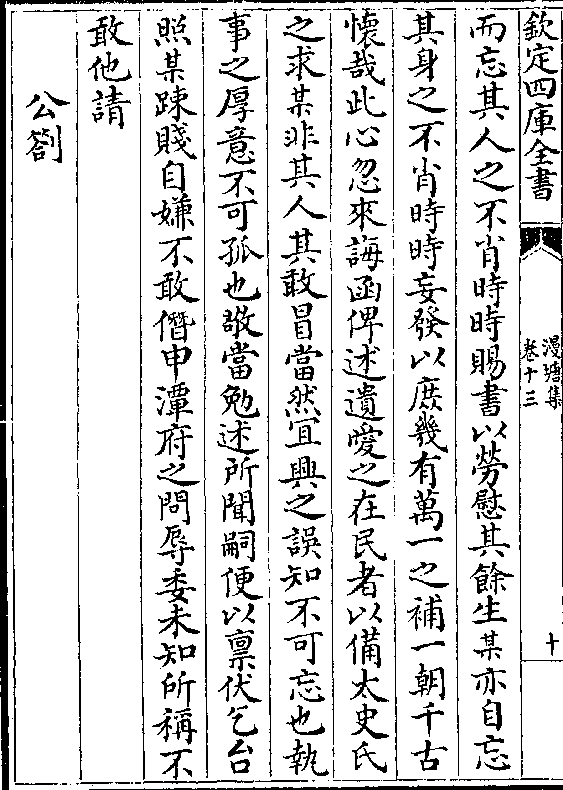 欽定四庫全書
漫塘集
卷十三
十
而忘其人之不肖時時賜書以勞慰其餘生某亦自忘
其身之不肖時時妄發以庶幾有萬一之補一朝千古
懷哉此心忽來誨函俾述遺愛之在民者以備太史氏
之求某非其人其敢冒當然宜興之誤知不可忘也執
事之厚意不可孤也敬當勉述所聞嗣便以禀伏乞台
照某踈賤自嫌不敢僭申潭府之問辱委未知所稱不
敢他請
公劄